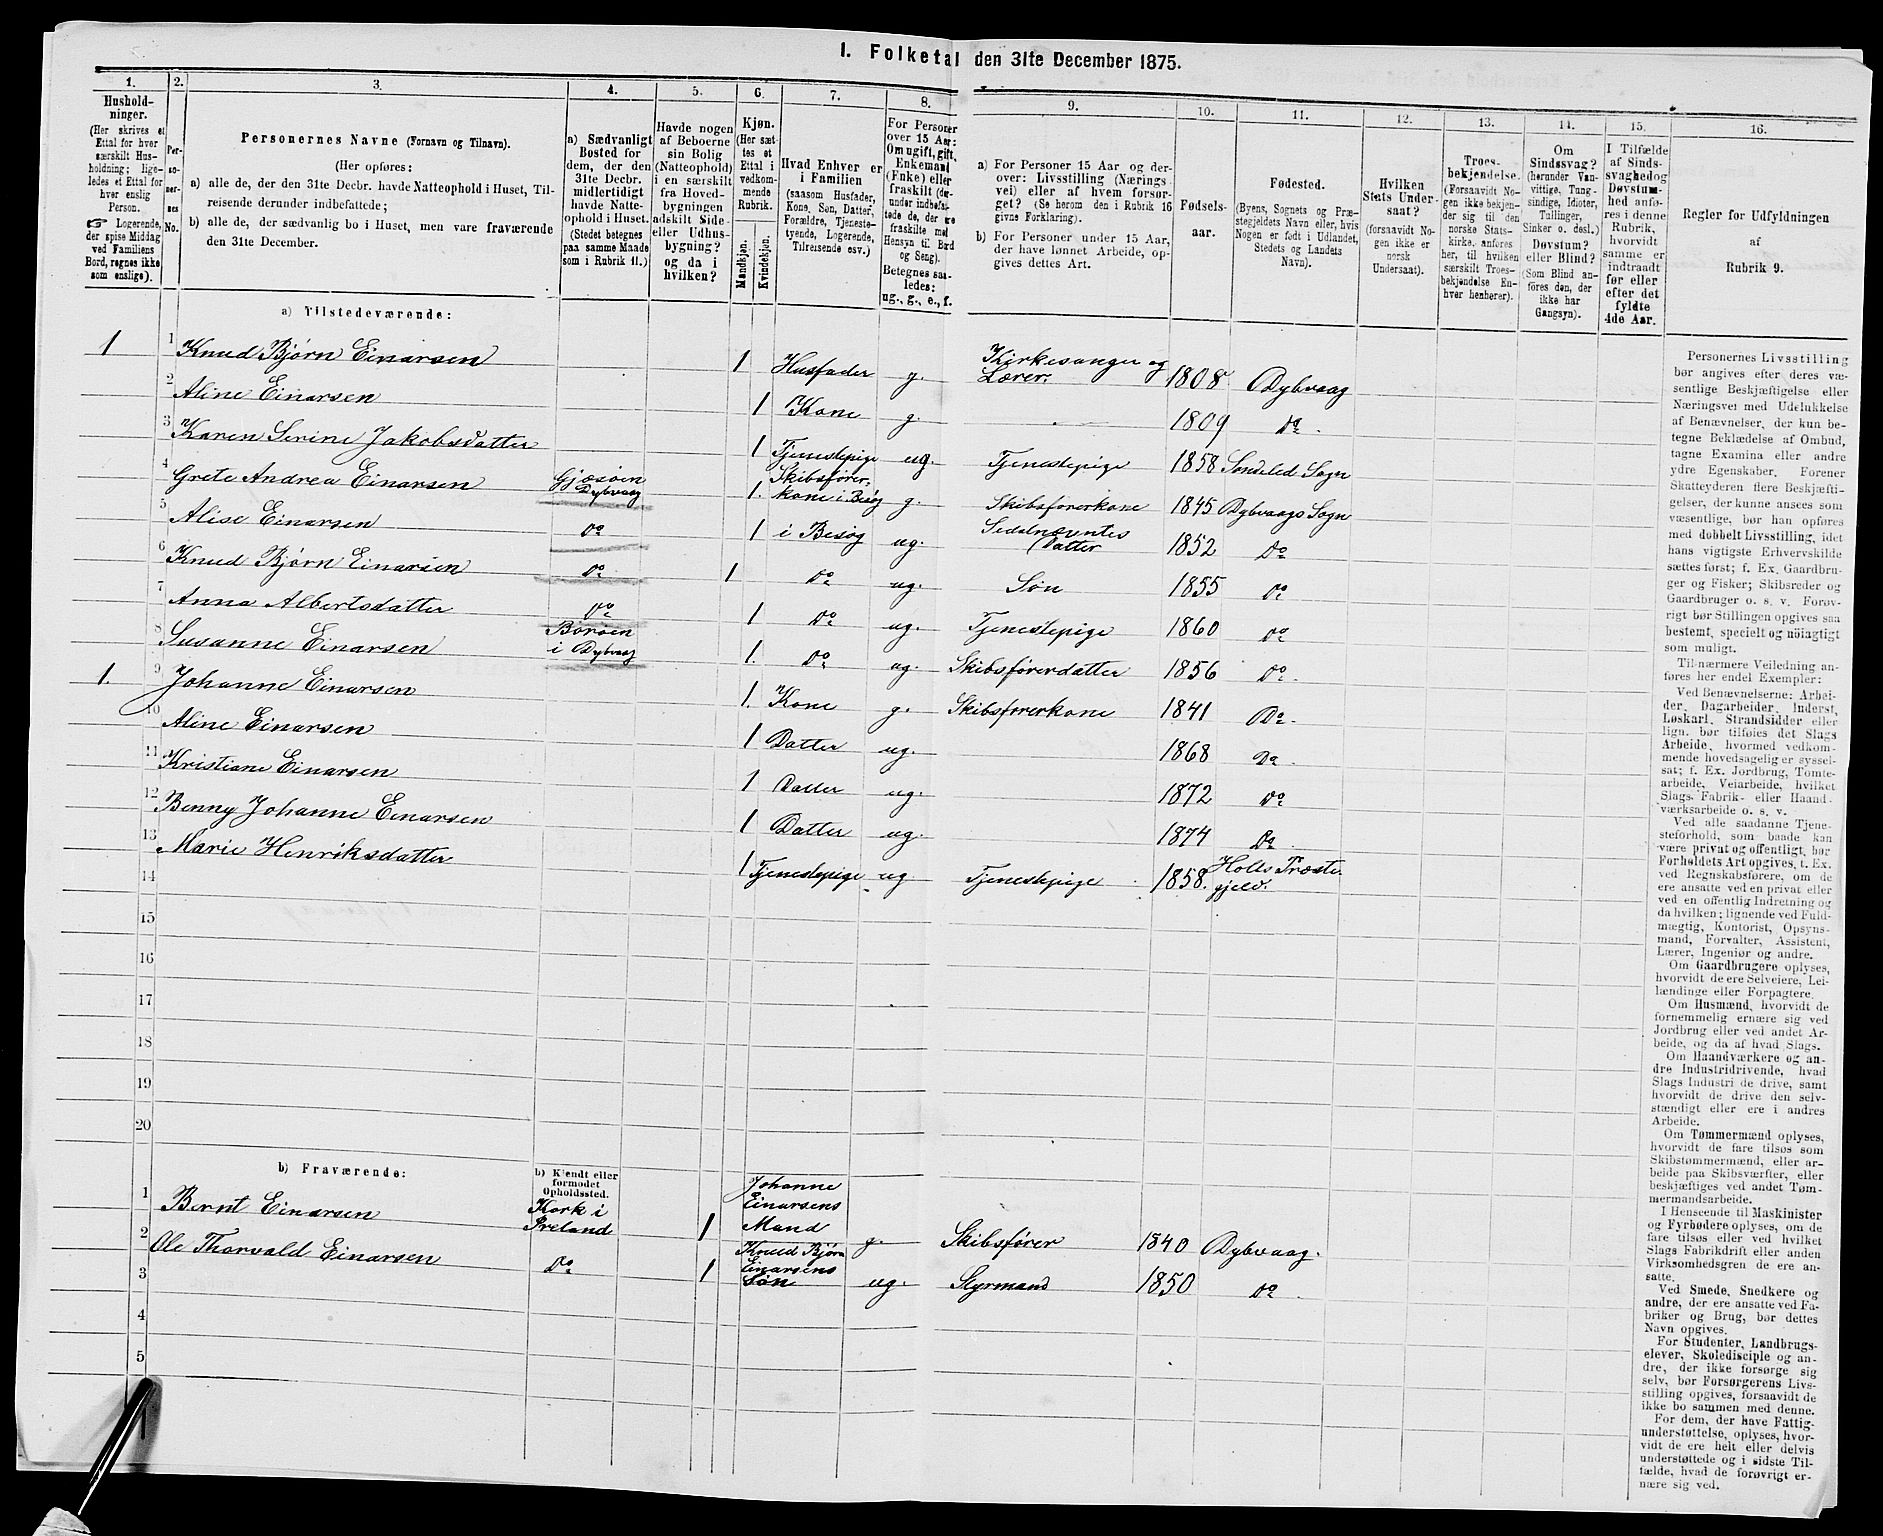 I. Folketal den 31te December 1875.
1.
Hushold-
ninger.
(Her skrives et
Ettal for hver
særskilt Hus-
holdning; lige-
ledes et Ettal for
hver enslig
Person.
☞ Logerende,
der spise Middag
ved Familiens
Bord, regnes ikke
som enslige).
2.
Per-
so-
ner-
nes
No.
3.
Personernes Navne (Fornavn og Tilnavn).
(Her opføres:
a) alle de, der den 31te Decbr. havde Natteophold i Huset, Til-
reisende derunder indbefattede;
b) alle de, der sædvanlig bo i Huset, men vare fraværende
den 31te December.
4.
a) Sædvanligt
Bosted for
dem, der den
31te Decbr.
midlertidigt
havde Natte-
ophold i Huset.
(Stedet betegnes
paa samme Maade
som i Rubrik 11.)
5.
Havde nogen
af Beboerne
sin Bolig
(Natteophold)
i en særskilt
fra Hoved-
bygningen
adskilt Side-
eller Udhus-
bygning?
og da i
hvilken?
6.
Kjøn.
(Her sæt-
tes et
Ettal i
vedkom-
mende
Rubrik.
Mandkjøn.
Kvindekjøn.
7.
Hvad Enhver er
i Familien
(saasom Husfader,
Kone, Søn, Datter,
Forældre, Tjeneste-
tyende, Logerende,
Tilreisende osv.)
8.
For Personer
over 15 Aar:
Om ugift, gift,
Enkemand
(Enke) eller
fraskilt (der-
under indbefat-
tede de, der ere
fraskilte med
Hensyn til Bord
og Seng).
Betegnes saa-
ledes:
ug., g., e., f.
9.
a) For Personer 15 Aar og der-
over: Livsstilling (Nærings-
vei) eller af hvem forsør-
get? (Se herom den i Rubrik 16
givne Forklaring).
b) For Personer under 15 Aar,
der have lønnet Arbeide, op-
gives dettes Art.
10.
Fødsels-
aar.
11.
Fødested.
(Byens, Sognets og Præ-
stegjeldets Navn eller, hvis
Nogen er født i Udlandet,
Stedets og Landets
Navn).
12.
Hvilken
Stats Under-
saat?
(forsaavidt No-
gen ikke er
norsk
Undersaat).
13.
Troes-
bekjendelse.
(Forsaavidt No-
gen ikke bekjen-
der sig til den
norske Stats-
kirke, anføres
her, til hvilken
særskilt Troes-
bekjendelse En-
hver henhører).
14.
Om
Sindssvag?
(herunder Van-
vittige, Tung-
sindige, Idioter,
Tullinger,
Sinker o. desl.)
Døvstum?
eller Blind?
(Som Blind an-
føres den, der
ikke har
Gangsyn).
15.
I Tilfælde
af Sinds-
svaghed og
Døvstum-
hed anfø-
res i denne
Rubrik,
hvorvidt
samme er
indtraadt
før eller
efter det
fyldte
4de Aar.
16.
Regler for Udfyldningen
af
Rubrik 9.
a) Tilstedeværende:
1 1 Knud Bjørn Einarsen 1 Husfader g. Kirkesanger og Lærer. 1808 Dybvaag
2 Aline Einarsen 1 Kone g. 1809 Do.
3 Karen Serine Jakobsdatter 1 Tjenestepige ug. Tjenestepige 1858 Søndeled Sogn
4 Grete Andrea Einarsen Gjæsøen Dybvaag 1. Skibsfører- kone i Besøg g. Skibsførerkone 1845 Dybvaags Sogn
5 Alise Einarsen Do 1 i Besøg ug. Datter 1852 Do
6 Knud Bjørn Einarsen Do 1 Do ug. Søn 1855 Do
7 Anna Albertsdatter Do 1 Do ug. Tjenestepige 1860 Do
8 Susanne Einarsen Borøen i Dybvaag 1. Do ug. Skibsførerdatter 1856 Do.
1. 9 Johanne Einarsen 1. Kone g. Skibsførerkone 1841 Do.
10 Aline Einarsen 1 Datter ug. 1868 Do.
11 Kristiane Einarsen 1 Datter ug. 1872 Do
12 Benny Johanne Einarsen 1 Datter ug. 1874 Do
13 Marie Henriksdatter 1 Tjenestepige ug. Tjenestepige 1858. Holts Præste- gjeld.
14
15
16
17
18
19
20
b) Fraværende:
b) Kjendt eller
formodet
Opholdssted.
1 Bernt Einarsen Kork i Ireland 1 Johanne Einarsens Mand g. Skibsfører 1840 Dybvaag.
2 Ole Thorvald Einarsen Do 1 Knud Bjørn Einarsens Søn ug. Styrmand 1850 Do.
3
4
5
Personernes Livsstilling
bør angives efter deres væ-
sentlige Beskjæftigelse eller
Næringsvei med Udelukkelse
af Benævnelser, der kun be-
tegne Beklædelse af Ombud,
tagne Examina eller andre
ydre Egenskaber. Forener
Skatteyderen flere Beskjæfti-
gelser, der kunne ansees som
væsentlige, bør han opføres
med dobbelt Livsstilling, idet
hans vigtigste Erhvervskilde
sættes først; f. Ex. Gaardbru-
ger og Fisker; Skibsreder og
Gaardbruger o. s. v. Forøv-
rigt bør Stillingen opgives saa
bestemt, specielt og nøiagtigt
som muligt.
Til nærmere Veiledning an-
føres her endel Exempler:
Ved Benævnelserne: Arbei-
der, Dagarbeider, Inderst,
Løskarl, Strandsidder eller
lign. bør tilføies det Slags
Arbeide, hvormed vedkom-
mende hovedsagelig er syssel-
sat; f. Ex. Jordbrug, Tomte-
arbeide, Veiarbeide, hvilket
Slags Fabrik- eller Haand-
værksarbeide o. s. v.
Ved alle saadanne Tjene-
steforhold, som baade kan
være privat og offentligt, bør
Forholdets Art opgives, t. Ex.
ved Regnskabsførere, om de
ere ansatte ved en privat eller
ved en offentlig Indretning og
da hvilken; lignende ved Fuld-
mægtig, Kontorist, Opsyns-
mand, Forvalter, Assistent,
Lærer, Ingeniør og andre.
Om Gaardbrugere oplyses,
hvorvidt de ere Selveiere, Lei-
lændinge eller Forpagtere.
Om Husmænd, hvorvidt de
fornemmelig ernære sig ved
Jordbrug eller ved andet Ar-
beide, og da af hvad Slags.
Om Haandværkere og an-
dre Industridrivende, hvad
Slags Industri de drive, samt
hvorvidt de drive den selv-
stændigt eller ere i andres
Arbeide.
Om Tømmermænd oplyses,
hvorvidt de fare tilsøs som
Skibstømmermænd, eller ar-
beide paa Skibsværfter, eller
beskjæftiges ved andet Tøm-
mermandsarbeide.
I Henseende til Maskinister
og Fyrbødere oplyses, om de
fare tilsøs eller ved hvilket
Slags Fabrikdrift eller anden
Virksomhedsgren de ere an-
satte.
Ved Smede, Snedkere og
andre, der ere ansatte ved Fa-
briker og Brug, bør dettes
Navn opgives.
For Studenter, Landbrugs-
elever, Skoledisciple og an-
dre, der ikke forsørge sig
selv, bør Forsørgerens Livs-
stilling opgives, forsaavidt de
ikke bo sammen med denne.
For dem, der have Fattig-
understøttelse, oplyses, hvor-
vidt de ere helt eller delvis
understøttede og i sidste Til-
fælde, hvad de forøvrigt er-
nære sig ved.